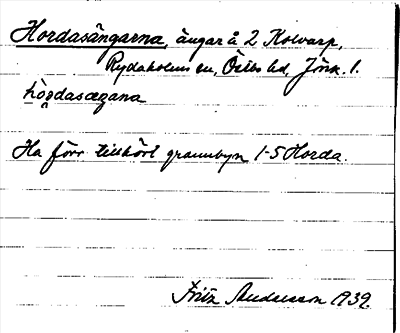 Hordasängarna, ängar å 2 Kolvarp,
Rydaholms sn, Östbo hd, Jönk. l.
hoɷdasæŋana
Ha förr tillhört grannbyn 1-5 Horda.
Fritz Andersson 1939.